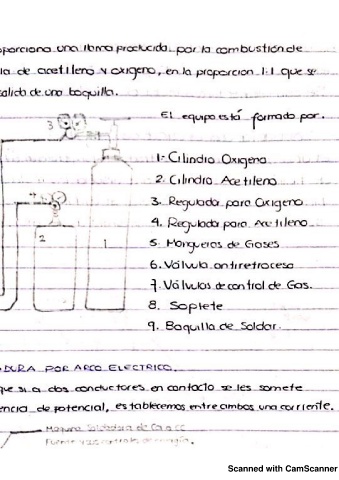 oporciona una llama producida por la combustión de
la de acetileno y oxigeno, en la proporcion 1:1 que se
salida de una boquilla.
El equipo está formado por.
3
1- Cilindro Oxigeno
2. Cilindro Acetileno
3. Regulada para Oxigeno
4. Regulada para Acetileno
2
1
5. Mangueras de Gases
6. Válvula antirretroceso
7. Válvulas de control de Gas.
8. Soplete
9. Boquilla de Soldar.
DURA POR ARCO ELECTRICO.
que si a dos conductores en contacto se les somete
encia de potencial, establecemos entre ambos una corriente.
Maquina Soldadora de Ca o CC
Fuente y sus controles de energia.
Scanned with CamScanner